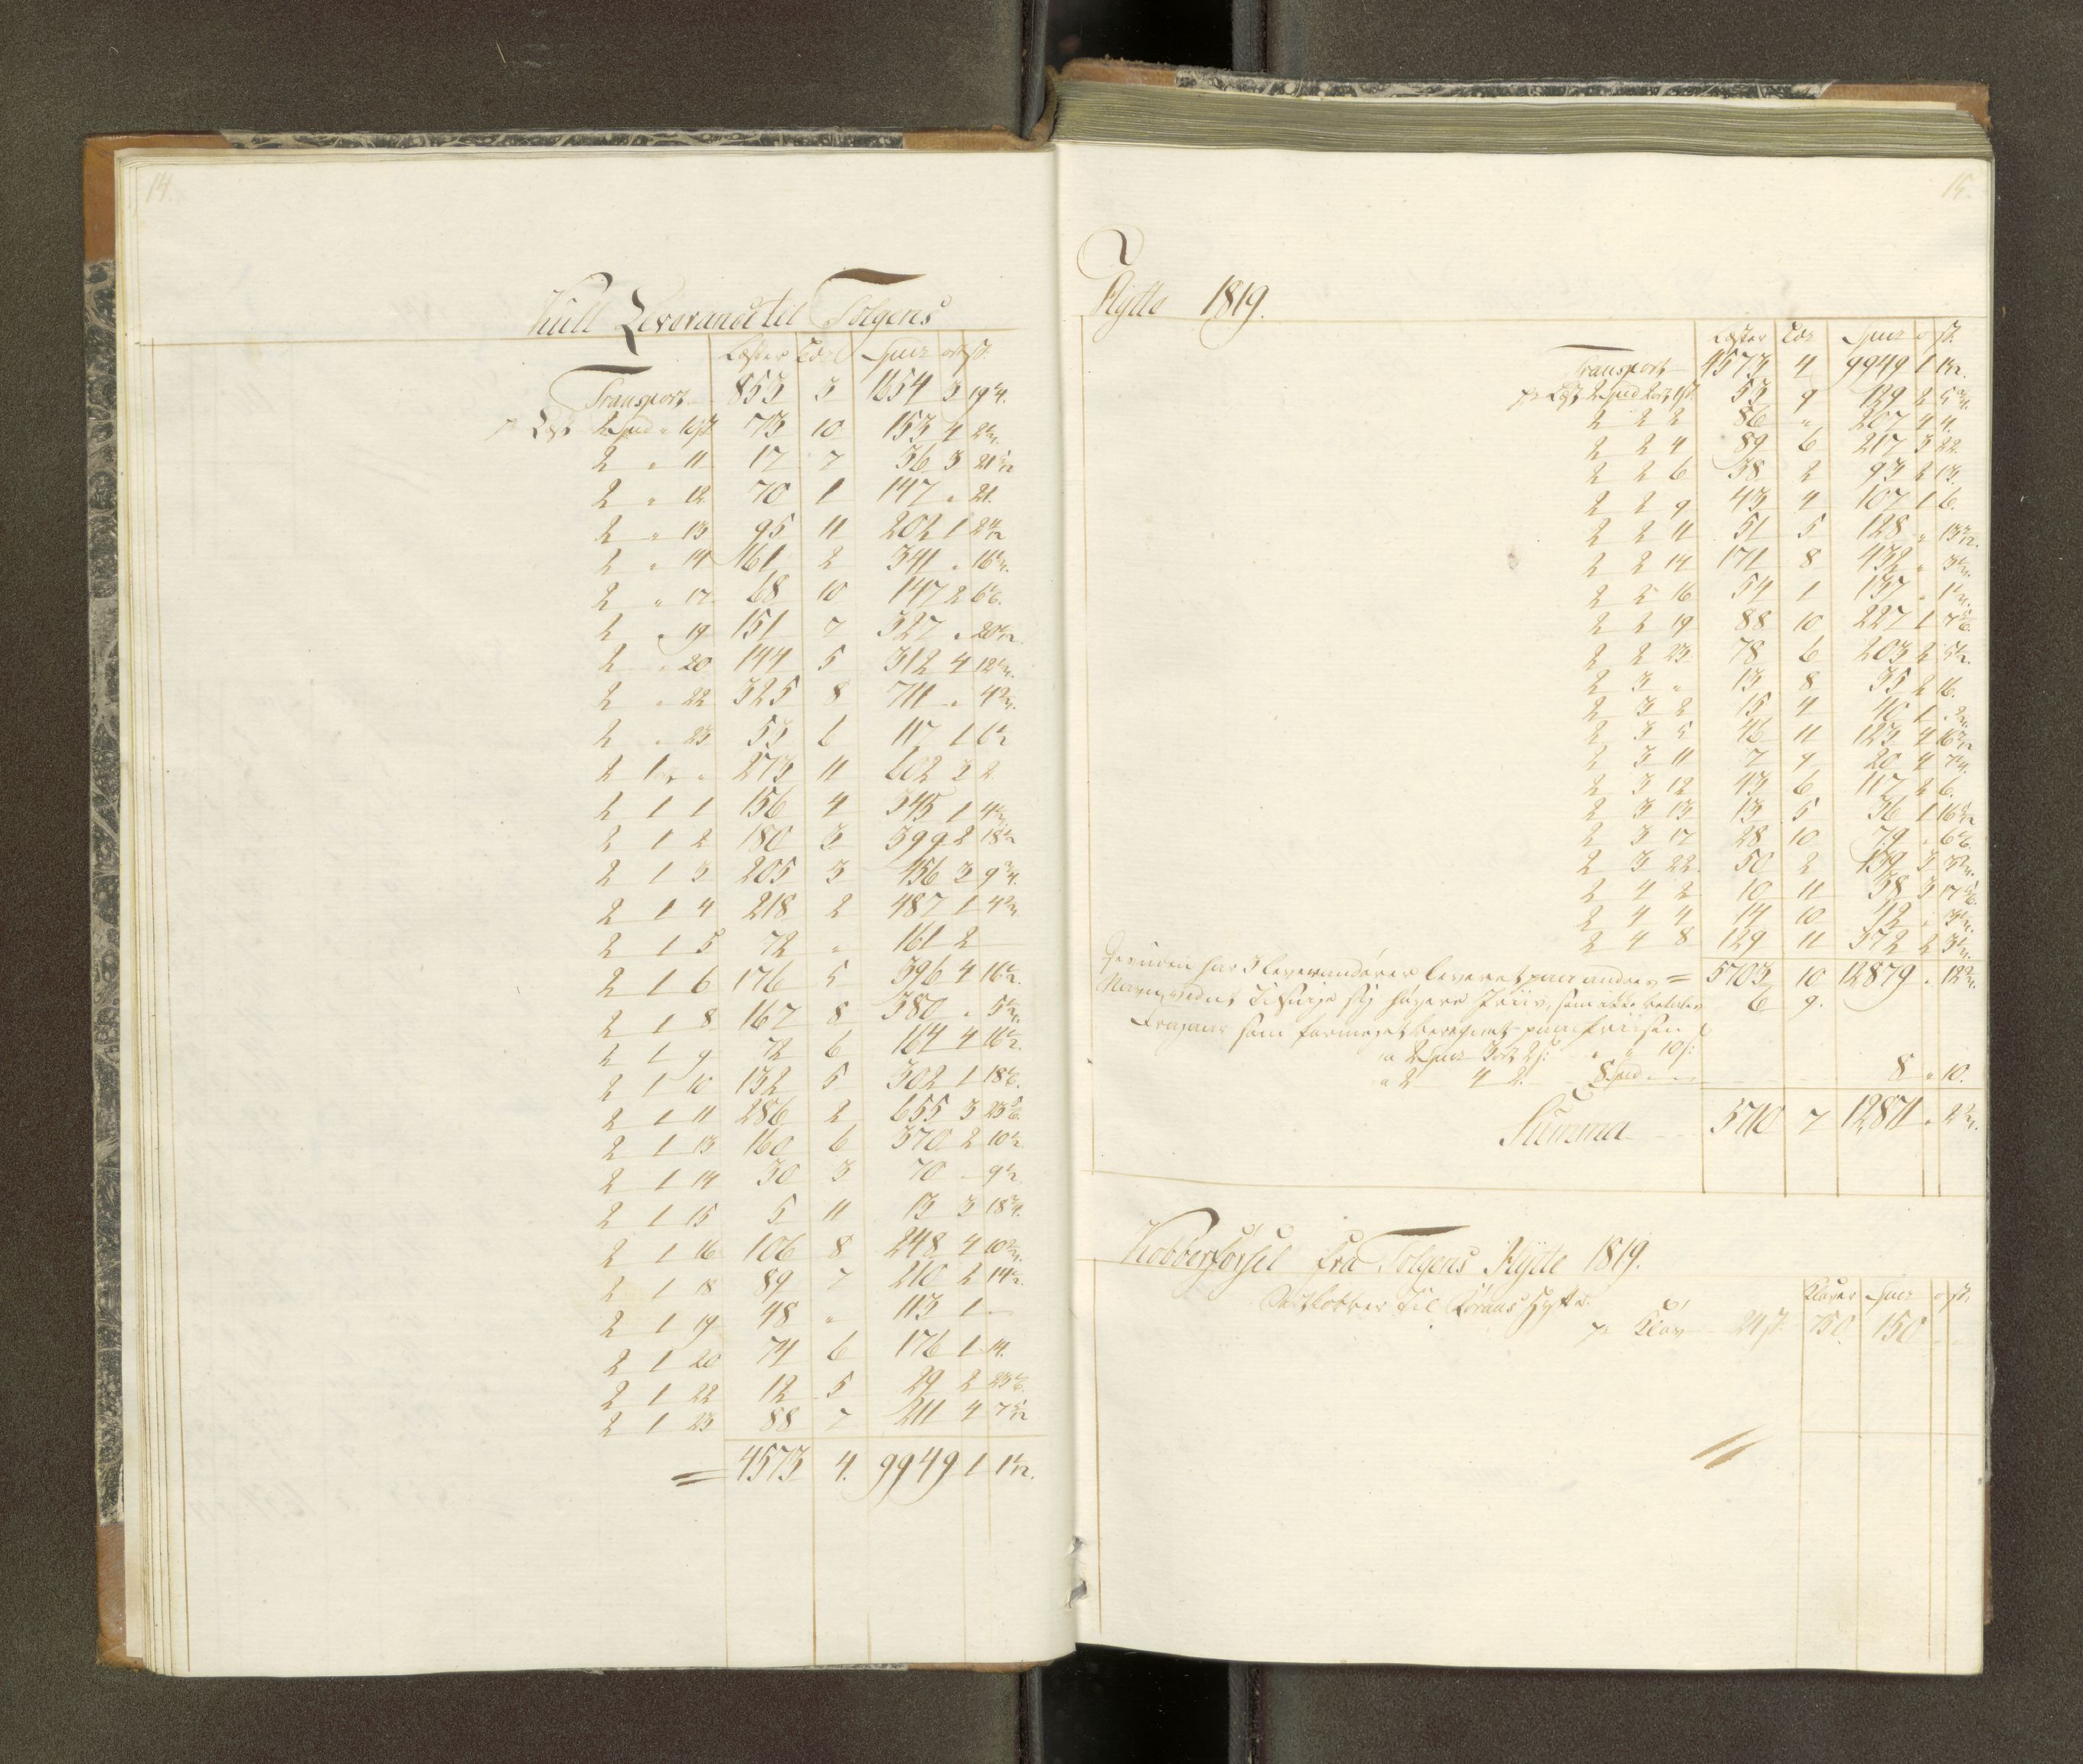 14.
Kull Leverance til Tolgens
Læster Tdr Spec ort ß.
Transport 853 3 1654 3 19 1/4.
pr Læst 2 Spd " 10ß 73 10 153 4 2
2 " 11 17 7 36 3 21
2 " 12 70 1 147 " 21.
2 " 13 95 11 202 1 2
2 " 14 161 2 341 " 16
2 " 17 68 10 147 2 6
2 " 19 151 7 327 " 20
2 " 20 144 5 312 4 12
2 " 22 325 8 711 " 4
2 " 23 53 6 117 1 6
2 1 " 273 11 602 3 2
2 1 1 156 4 345 1 4
2 1 2 180 3 399 2 18
2 1 3 205 3 456 3 9 3/4.
2 1 4 218 2 487 1 4
2 1 5 72 " 161 2
2 1 6 176 5 396 4 16 1/2.
2 1 8 167 8 380 " 5
2 1 9 72 6 164 4 16 1/2.
2 1 10 132 5 302 1 18
2 1 11 286 2 655 3 23
2 1 13 160 6 370 2 10 1/2
2 1 14 30 3 70 - 9 1/2
2 1 15 5 11 13 3 18 3/4.
2 1 16 106 8 248 4 10
2 1 18 89 7 210 2 14 1/2.
2 1 19 48 " 113 1 -
2 1 20 74 6 176 1 14.
2 1 22 12 5 29 2 23
2 1 23 88 7 211 4 7
= 4573 4. 9949 1 1
15.
Hytte 1819.
Læster Tdr Spec o ß.
Transport 4573 4 9949 1 1
pr Læst 2 Spd 2 ort 1ß. 53 9 129 2 5 3/4.
2 2 2 86 " 207 4 4.
2 2 4 89 6 217 3 22.
2 2 6 38 2 93 2 13.
2 2 9 43 4 107 1 6.
2 2 11 51 5 128 " 13
2 2 14 171 8 432 " 3
2 2 16 54 1 137 " 1
2 2 19 88 10 227 1 7
2 2 23 78 6 203 2 5 1/2.
2 3 " 13 8 35 2 16.
2 3 2 15 4 40 1 2
2 3 5 46 11 123 4 16
2 3 11 7 9 20 4 7
2 3 12 43 6 117 2 6.
2 3 13 13 5 36 1 16
2 3 17 28 10 79 " 6
2 3 22 50 2 139 3 3
2 4 2 10 11 38 3 17
2 4 4 14 10 42 " 3
2 4 8 129 11 372 2 3
Desuden har 3 leverandører leveret paa andres = 5703 10 12879 " 12
Navn, ved at tilsnige sig høyere Priis, som ikke betales 6 9.
som formeget beregnet paa Priisen
a 2 Spec 3 ort 2ß: " " 10ß:
a 2 4 2. 8 Spd 8 " 10.
Summa 5710 7 12871 " 2
Kobberkjørsel fra Tolgens Hytte 1819.
Klover Spec o ß.
til Røraas Hytte.
pr Klov 24ß. 750. 150